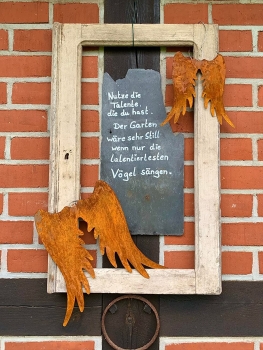 Nutze die
Talente,
die du hast.
Der Garten
wäre sehr still
wenn nur die
talentiertesten
Vögel sängen.